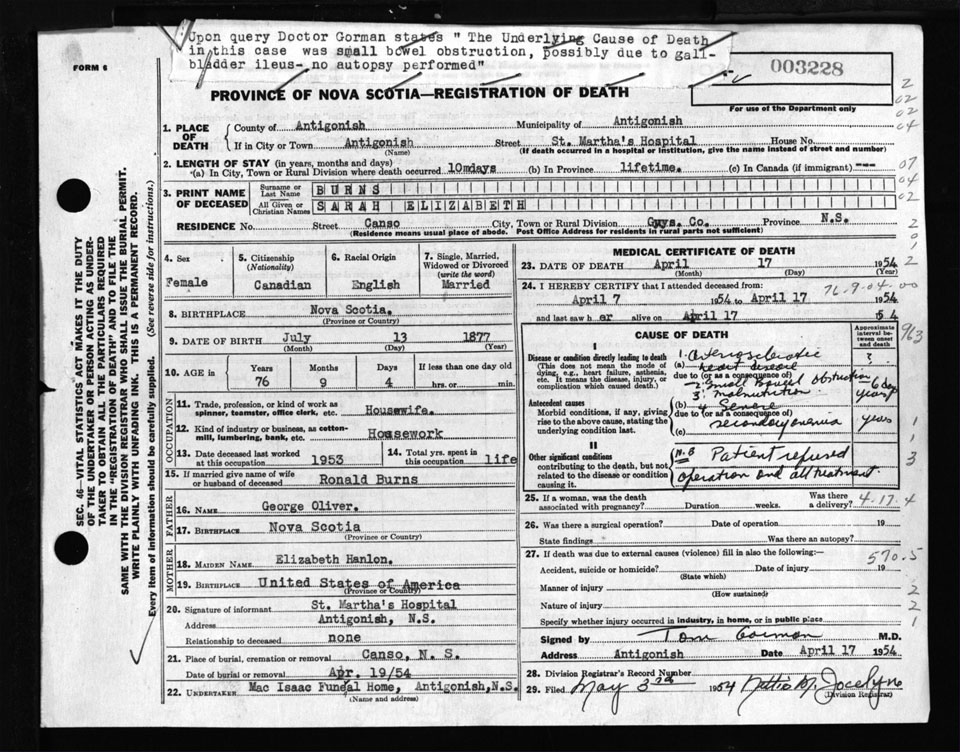 Upon query Doctor Gorman states " The Underlying Cause of Death
in this case was small bowel obstruction, possibly due to gall-
bladder ileus- no autopsy performed"
FORM 6
003228
PROVINCE OF NOVA SCOTIA—REGISTRATION OF DEATH
For use of the Department only
1. PLACE OF DEATH
County of Antigonish Municipality of Antigonish
If in City or Town Antigonish (Name) Street St. Martha's Hospital House No.
(If death occurred in a hospital or institution, give the name instead of street and number)
2. LENGTH OF STAY (in years, months and days)
(a) In City, Town or Rural Division where death occurred 10mdays (b) In Province lifetime. (c) In Canada (if immigrant) ---
3. PRINT NAME OF DECEASED
Surname or Last Name BURNS
All Given or Christian Names SARAH ELIZABETH
RESIDENCE No. Street Canso City, Town or Rural Division Guys. Co. Province N.S.
(Residence means usual place of abode. Post Office Address for residents in rural parts not sufficient)
4. Sex
Female
5. Citizenship (Nationality)
Canadian
6. Racial Origin
English
7. Single, Married, Widowed or Divorced (write the word)
Married
8. BIRTHPLACE Nova Scotia.
(Province or Country)
9. DATE OF BIRTH July 13 1877
(Month) (Day) (Year)
10. AGE in Years Months Days If less than one day old
76 9 4 hrs. or min.
OCCUPATION
11. Trade, profession, or kind of work as spinner, teamster, office clerk, etc. Housewife.
12. Kind of industry or business, as cotton-mill, lumbering, bank, etc. Housework
13. Date deceased last worked at this occupation 1953
14. Total yrs. spent in this occupation life
15. If married give name of wife or husband of deceased Ronald Burns
FATHER
16. NAME George Oliver.
17. BIRTHPLACE Nova Scotia
(Province or Country)
MOTHER
18. MAIDEN NAME Elizabeth Hanlon.
19. BIRTHPLACE United States of America
(Province or Country)
20. Signature of informant St. Martha's Hospital
Address Antigonish, N.S.
Relationship to deceased none
21. Place of burial, cremation or removal Canso, N. S.
Date of burial or removal Apr. 19/54
22. UNDERTAKER Mac Isaac Funeral Home, Antigonish,N.S.
(Name and address)
MEDICAL CERTIFICATE OF DEATH
23. DATE OF DEATH April 17 1954
(Month) (Day) (Year)
24. I HEREBY CERTIFY that I attended deceased from:
April 7 1954 to April 17 1954
and last saw h er alive on April 17 54
CAUSE OF DEATH
Approximate interval between onset and death
I
Disease or condition directly leading to death
(This does not mean the mode of dying, e.g., heart failure, asthenia, etc. It means the disease, injury, or complication which caused death.)
(a) 1. Arteriosclerotic heart disease ?
due to (or as a consequence of)
2. Small Bowel Obstruction — 6 days
3. Malnutrition years
Antecedent causes
Morbid conditions, if any, giving rise to the above cause, stating the underlying condition last.
(b) 4 Severe
due to (or as a consequence of)
(c) secondary anemia years
II
Other significant conditions
contributing to the death, but not related to the disease or condition causing it.
N.B Patient refused
operation and all treatment.
25. If a woman, was the death associated with pregnancy? Duration weeks. Was there a delivery? 4-17-4
26. Was there a surgical operation? Date of operation 19
State findings Was there an autopsy?
27. If death was due to external causes (violence) fill in also the following:—
570.5
Accident, suicide or homicide? (State which) Date of injury 19
Manner of injury
(How sustained)
Nature of injury
Specify whether injury occurred in industry, in home, or in public place
Signed by Tom Gorman M.D.
Address Antigonish Date April 17 1954
28. Division Registrar's Record Number
29. Filed May 3rd 1954 Nettie M. Jocelyne
(Division Registrar)
76-9-04-00
963
SEC. 46—VITAL STATISTICS ACT MAKES IT THE DUTY
OF THE UNDERTAKER OR PERSON ACTING AS UNDER-
TAKER TO OBTAIN ALL THE PARTICULARS REQUIRED
IN THE "REGISTRATION OF DEATH" AND TO FILE THE
SAME WITH THE DIVISION REGISTRAR WHO SHALL ISSUE THE BURIAL PERMIT.
WRITE PLAINLY WITH UNFADING INK. THIS IS A PERMANENT RECORD.
Every item of information should be carefully supplied. (See reverse side for instructions.)
2
02
02
04
07
04
02
2
0
1
2
1
1
3
2
2
1